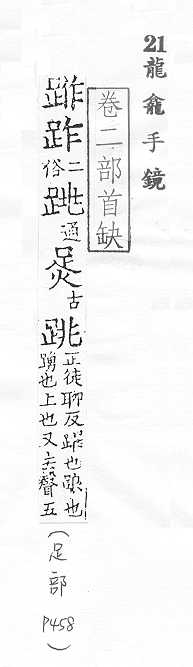 21 龍龕手鏡
卷二部首缺
二俗 通 古 跳
正徒聊反 也 也
踴也上也又去聲五
(足部 P458)